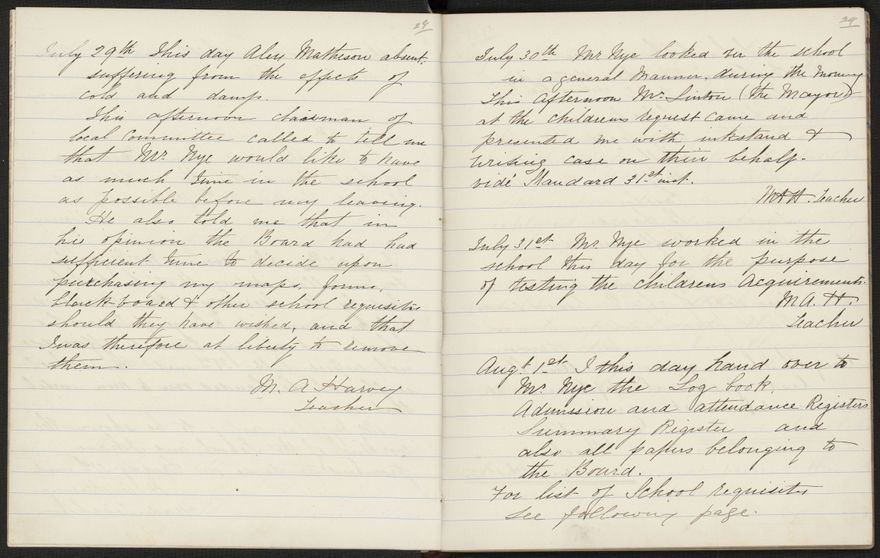 29
July 29th This day Alex Matheson absent.
suffering from the effects of
cold and damp.
This afternoon chairman of
local committee called to tell me
that Mr. Nye would like to have
as much time in the school
as possible before my leaving.
He also told me that in
his opinion the Board had had
sufficient time to decide upon
purchasing my maps, forms,
black-board & other school requisites
should they have wished, and that
I was therefore at liberty to remove
them.
M. A Harvey
Teacher
29
July 30th Mr Nye looked in the school
in a general manner, during the morning
This afternoon Mr. Linton (the Mayor)
at the childrens request came and
presented me with inkstand &
writing case on their behalf.
vidé Standard 31st inst.
M A H. Teacher
July 31st Mr Nye worked in the
school this day for the purpose
of testing the childrens Acquirements.
M A. H.
Teacher
Augt 1st I this day hand over to
Mr. Nye the Log book,
Admission and attendance Registers
Summary Register and
also all papers belonging to
the Board.
For list of School requisites
see following page.